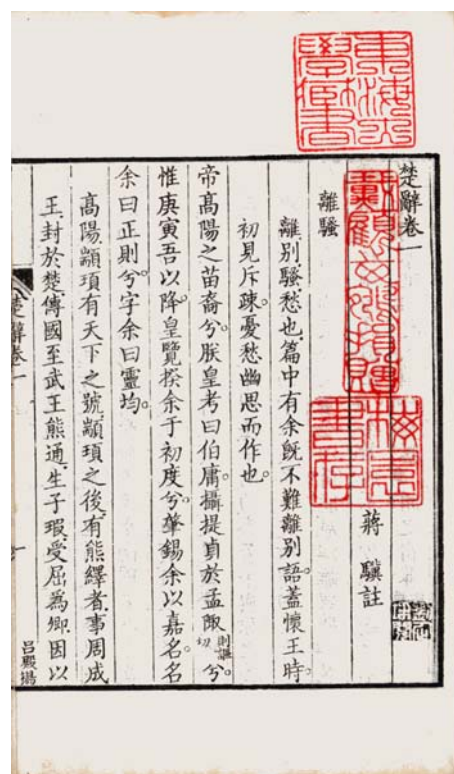 楚辭卷一
蔣 驥註
離騷
離別騷、愁也。篇中有余既不難離別語。蓋懷王時
初見斥疎。憂愁幽思而作也。
帝高陽之苗裔兮。朕皇考曰伯庸。攝提貞於孟陬則謳切兮。
惟庚寅吾以降。皇覽揆余于初度兮。肇錫余以嘉名。名
余曰正則兮。字余曰靈均。
高陽、顓頊有天下之號、顓頊之後、有熊繹者、事周成
王、封於楚、傳國至武王熊通、生子瑕、受屈為卿、因以
楚辭卷一
一
吕殿揚